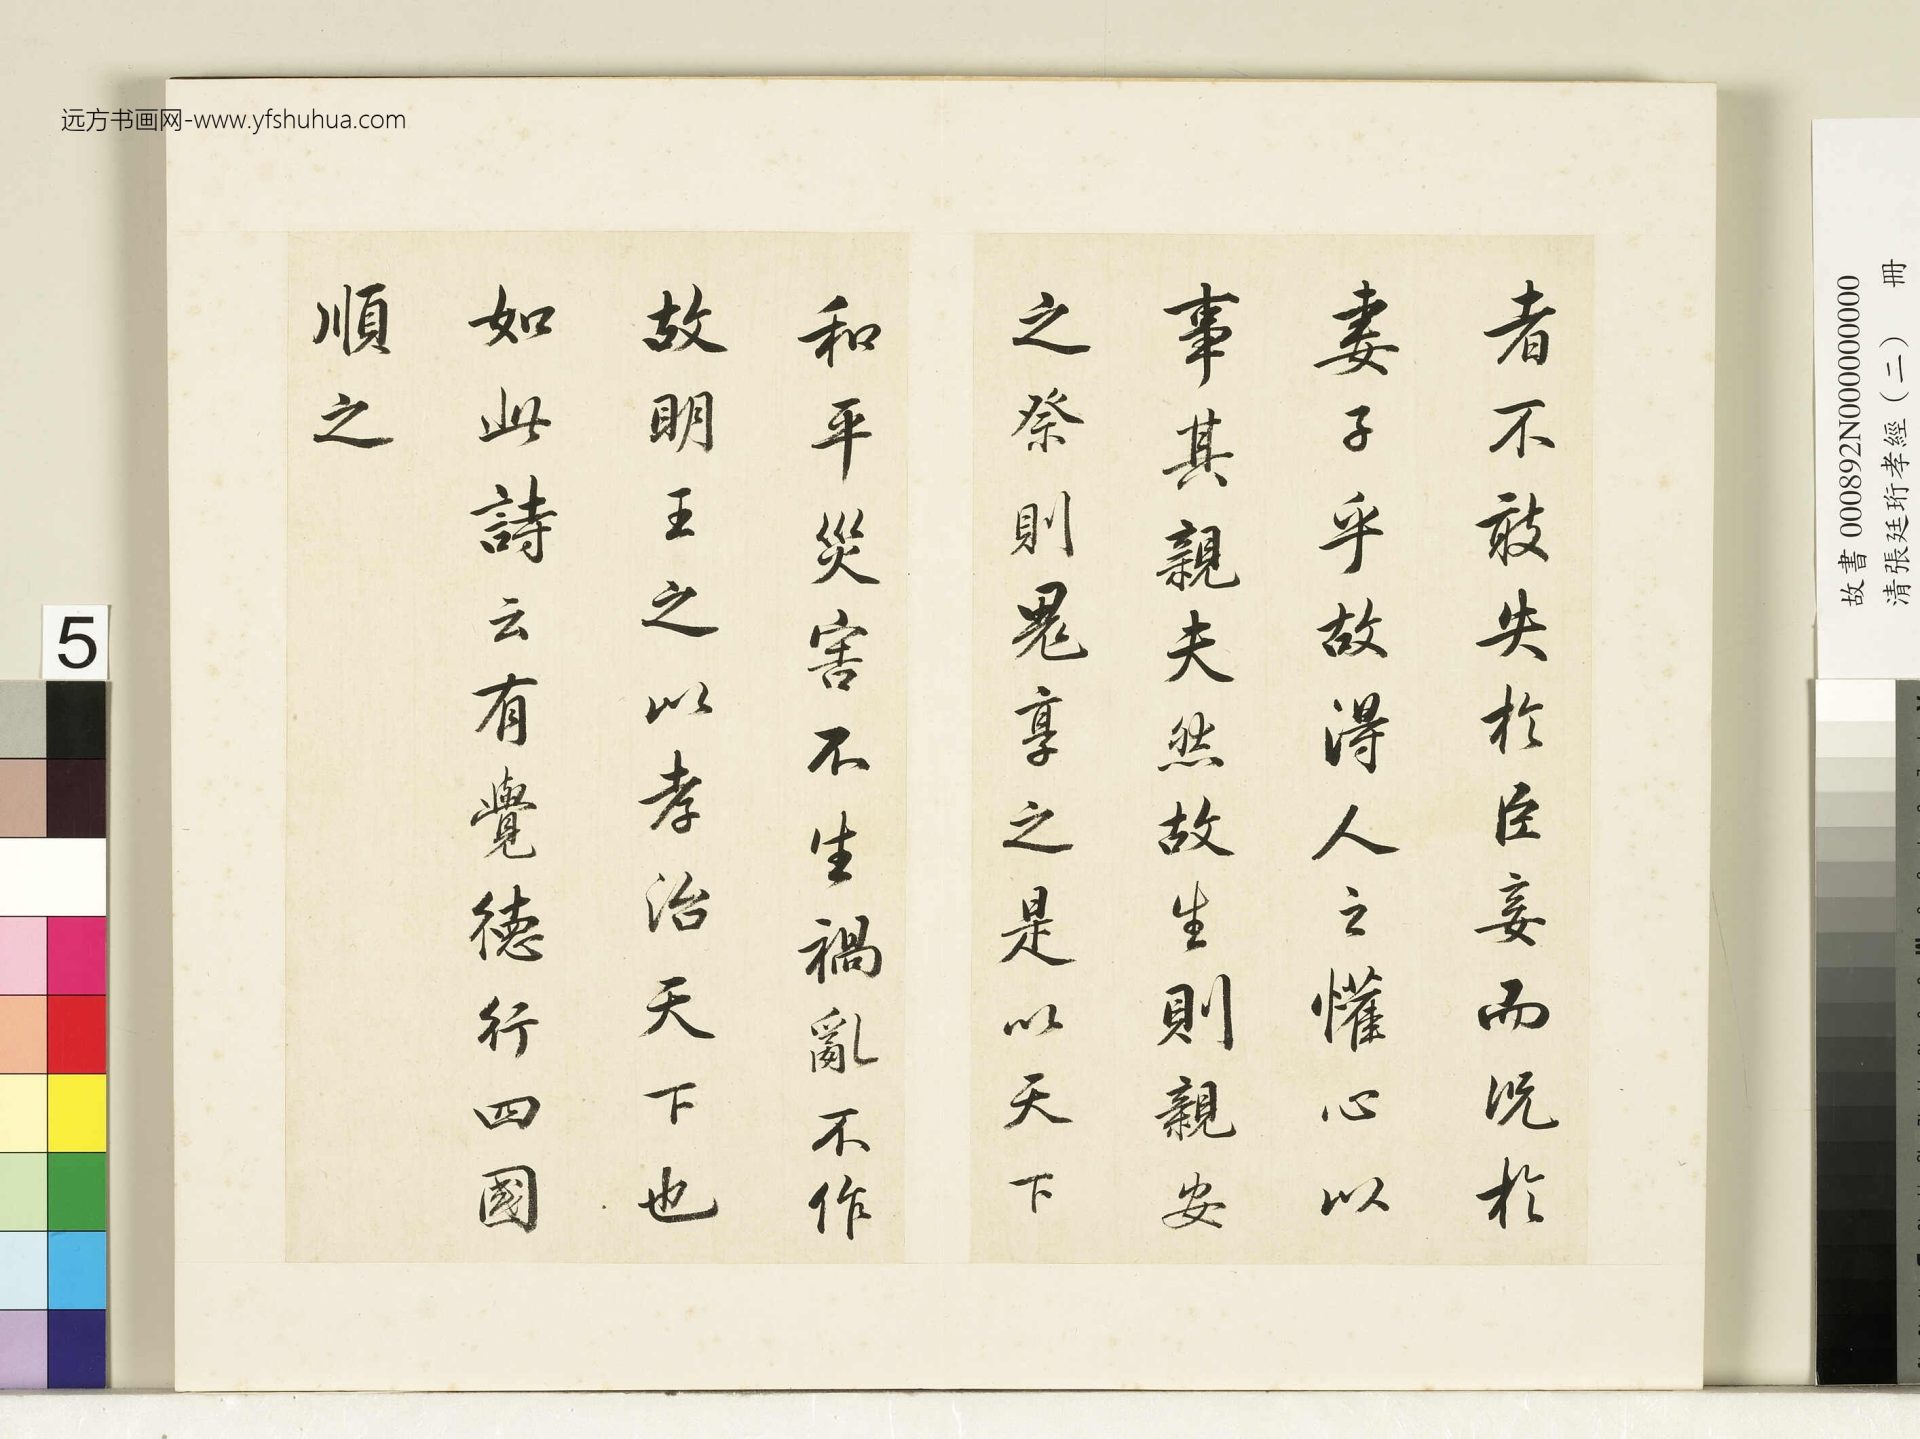 者不敢失於臣妾而況於
妻子乎故得人之懽心以
事其親夫然故生則親安
之祭則鬼享之是以天下
和平災害不生禍亂不作
故明王之以孝治天下也
如此詩云有覺德行四國
順之
远方书画网-www.yfshuhua.com
5
故書 000892N000000000
清張廷珩孝經（二） 冊